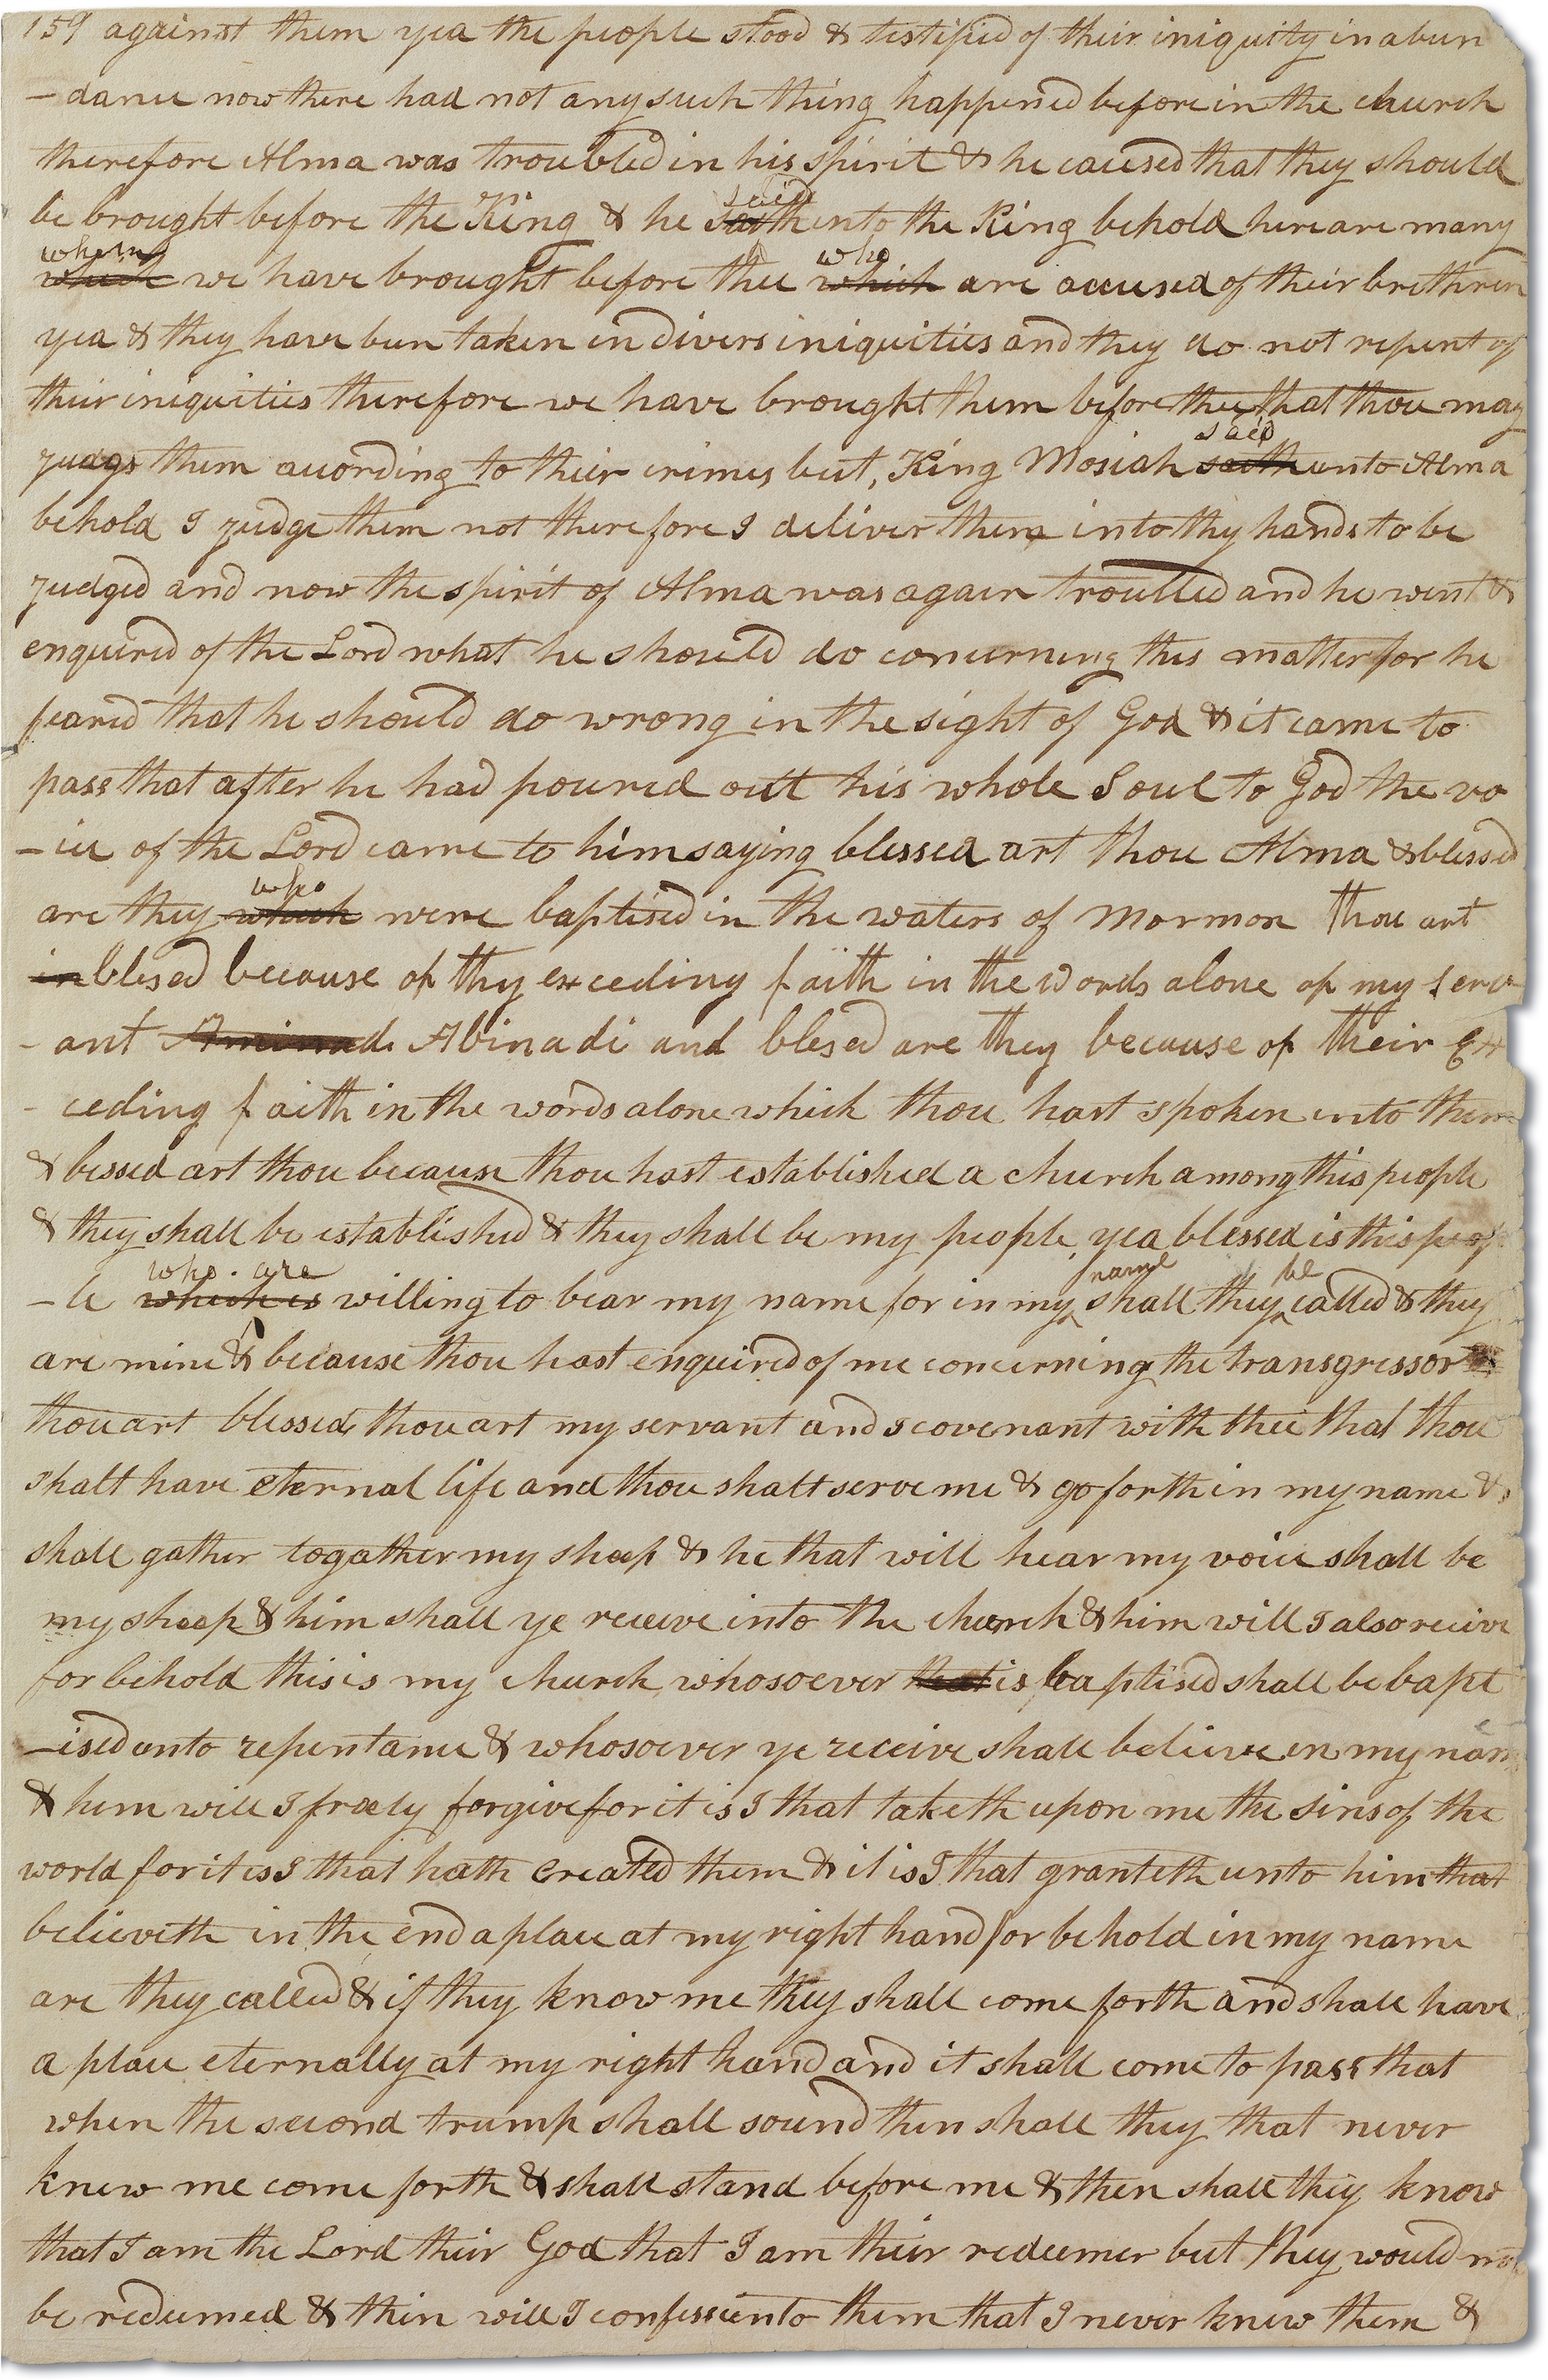 159 against them yea the people stood & testified of their iniquity in abun
-dance now there had not any such thing happened before in the church
therefore Alma was troubled in his spirit & he caused that they should
said
be brought before the King & he saith unto the King behold here are many
whom who
which we have brought before thee which are accused of their brethren
yea & they have been taken in divers iniquities and they do not repent of
their iniquities therefore we have brought them before thee that thou may
said
judge them according to their crimes but, King Mosiah saith unto Alma
behold I judge them not therefore I deliver them into thy hands to be
judged and now the spirit of Alma was again troubled and he went &
enquired of the Lord what he should do concerning this matter for he
feared that he should do wrong in the sight of God & it came to
pass that after he had poured out his whole Soul to God the vo
-ice of the Lord came to him saying blessed art thou Alma & blessed
who
are they which were baptised in the waters of Mormon thou art
in blesed because of thy exceding faith in the words alone of my serv
-ant Aminadi Abinadi and blesed are they because of their Ex
-ceding faith in the words alone which thou hast spoken unto them
& bessed art thou because thou hast established a church among this people
& they shall be established & they shall be my people, yea blessed is this peop
who are name be
-le which is willing to bear my name for in my shall they called & they
are mine & because thou hast enquired of me concerning the transgressor
thou art blessed, thou art my servant and I covenant with thee that thou
shalt have eternal life and thou shalt serve me & go forth in my name &
shall gather together my sheep & he that will hear my voice shall be
my sheep & him shall ye receive into the church & him will I also receive
for behold this is my church, whosoever that is baptised shall be bapt
-ised unto repentance & whosoever ye receive shall believe in my name
& him will I freely forgive for it is I that taketh upon me the sins of the
world for it is I that hath created them & it is I that granteth unto him that
believeth in the end a place at my right hand for behold in my name
are they called & if they know me they shall come forth and shall have
a place eternally at my right hand and it shall come to pass that
when the second trump shall sound then shall they that never
knew me come forth & shall stand before me & then shall they know
that I am the Lord their God that I am their redeemer but they would not
be redeemed & then will I confess unto them that I never knew them &